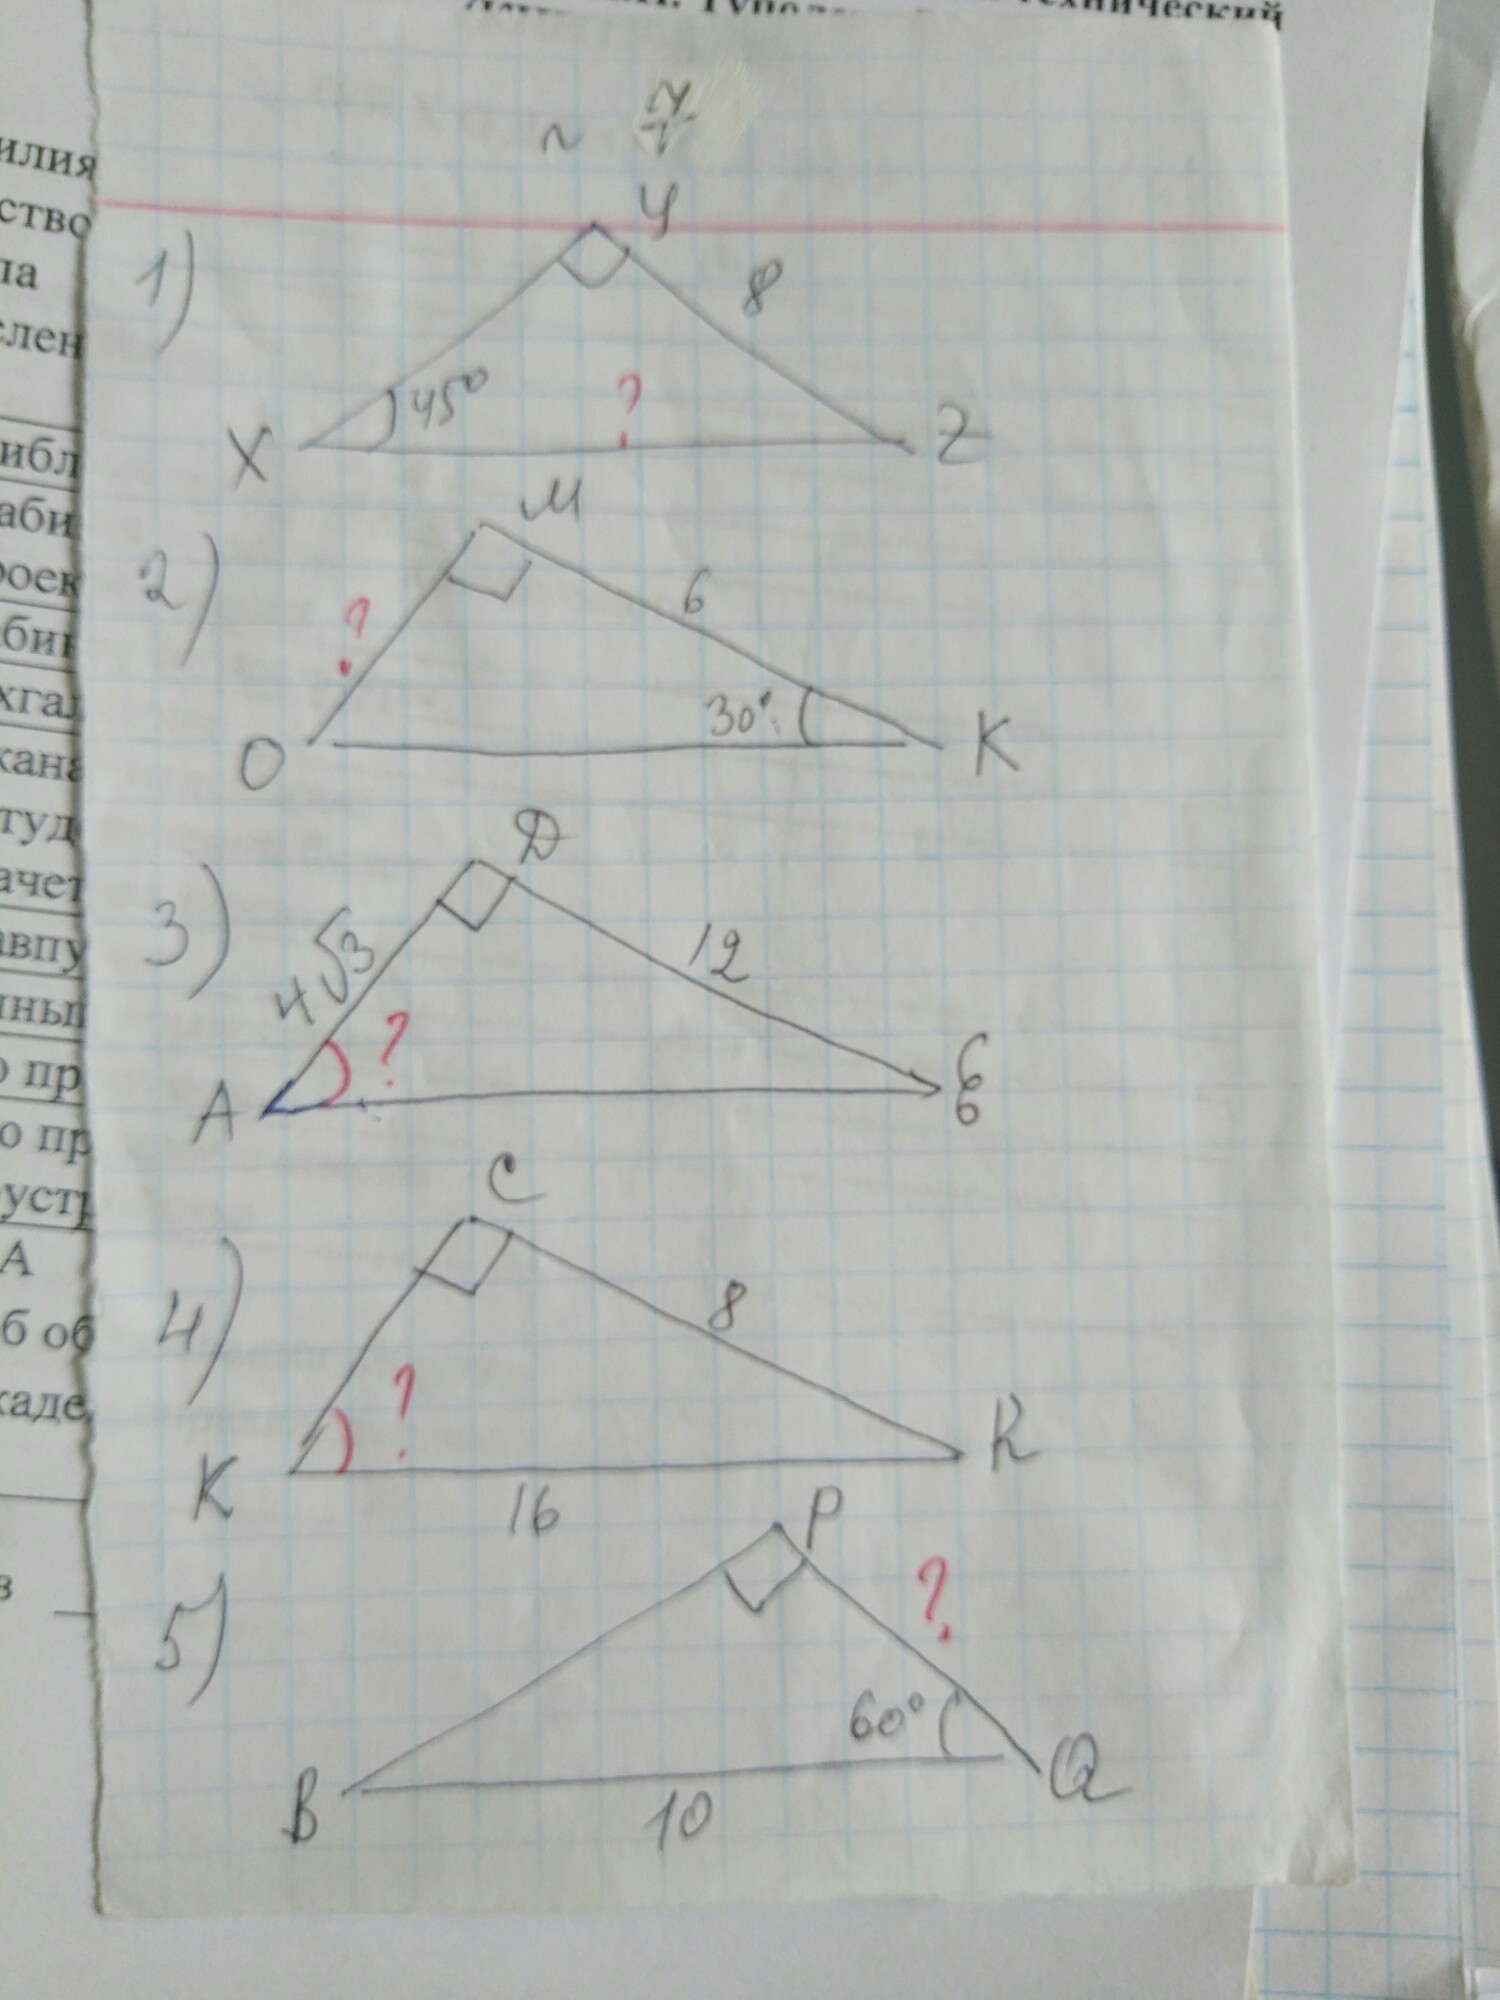 технический
илия
ство
ла
елен
ибл
аби
роек
бин
хгал
кана
туд
ачет
авпу
о пр
о пр
устр
А
б об
каде
в
1)
У
8
45°
?
X
Z
2)
М
6
?
30°
О
К
3)
Д
4√3
12
?
А
4)
С
8
?
К
R
16
5)
P
?
60°
B
Q
10